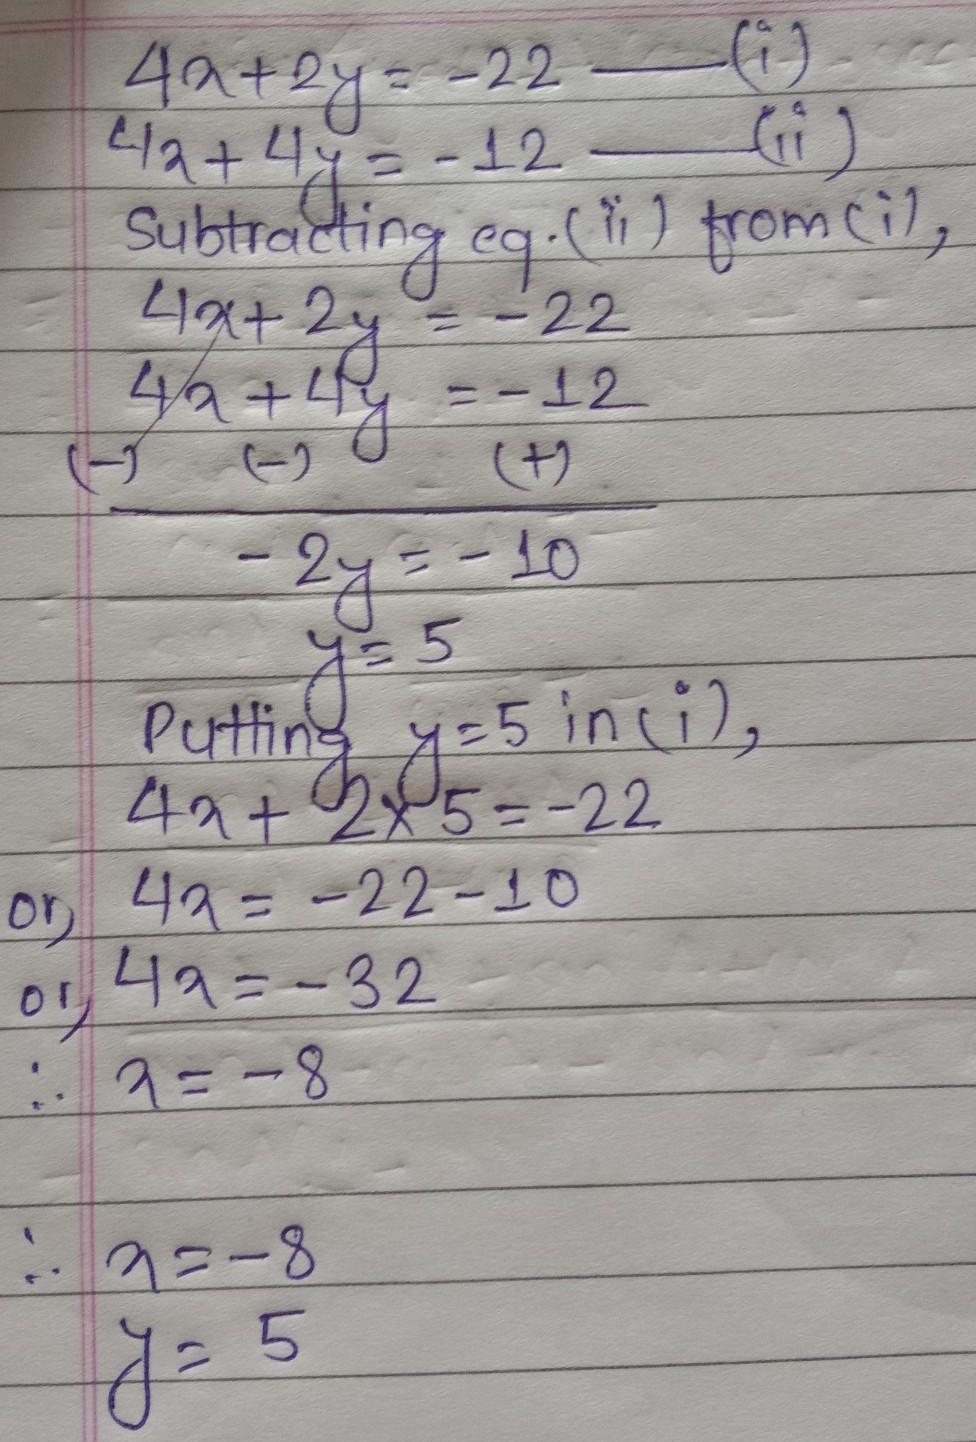 4x+2y= -22 —— (i)
4x+4y= -12 —— (ii)
Subtracting eq.(ii) from (i),
4x+2y = -22
4x+4y = -12
(-) (-) (+)
-2y= -10
y= 5
Putting y=5 in (i),
4x+ 2×5=-22
or, 4x= -22-10
or, 4x= -32
∴ x= -8
∴ x= -8
y= 5